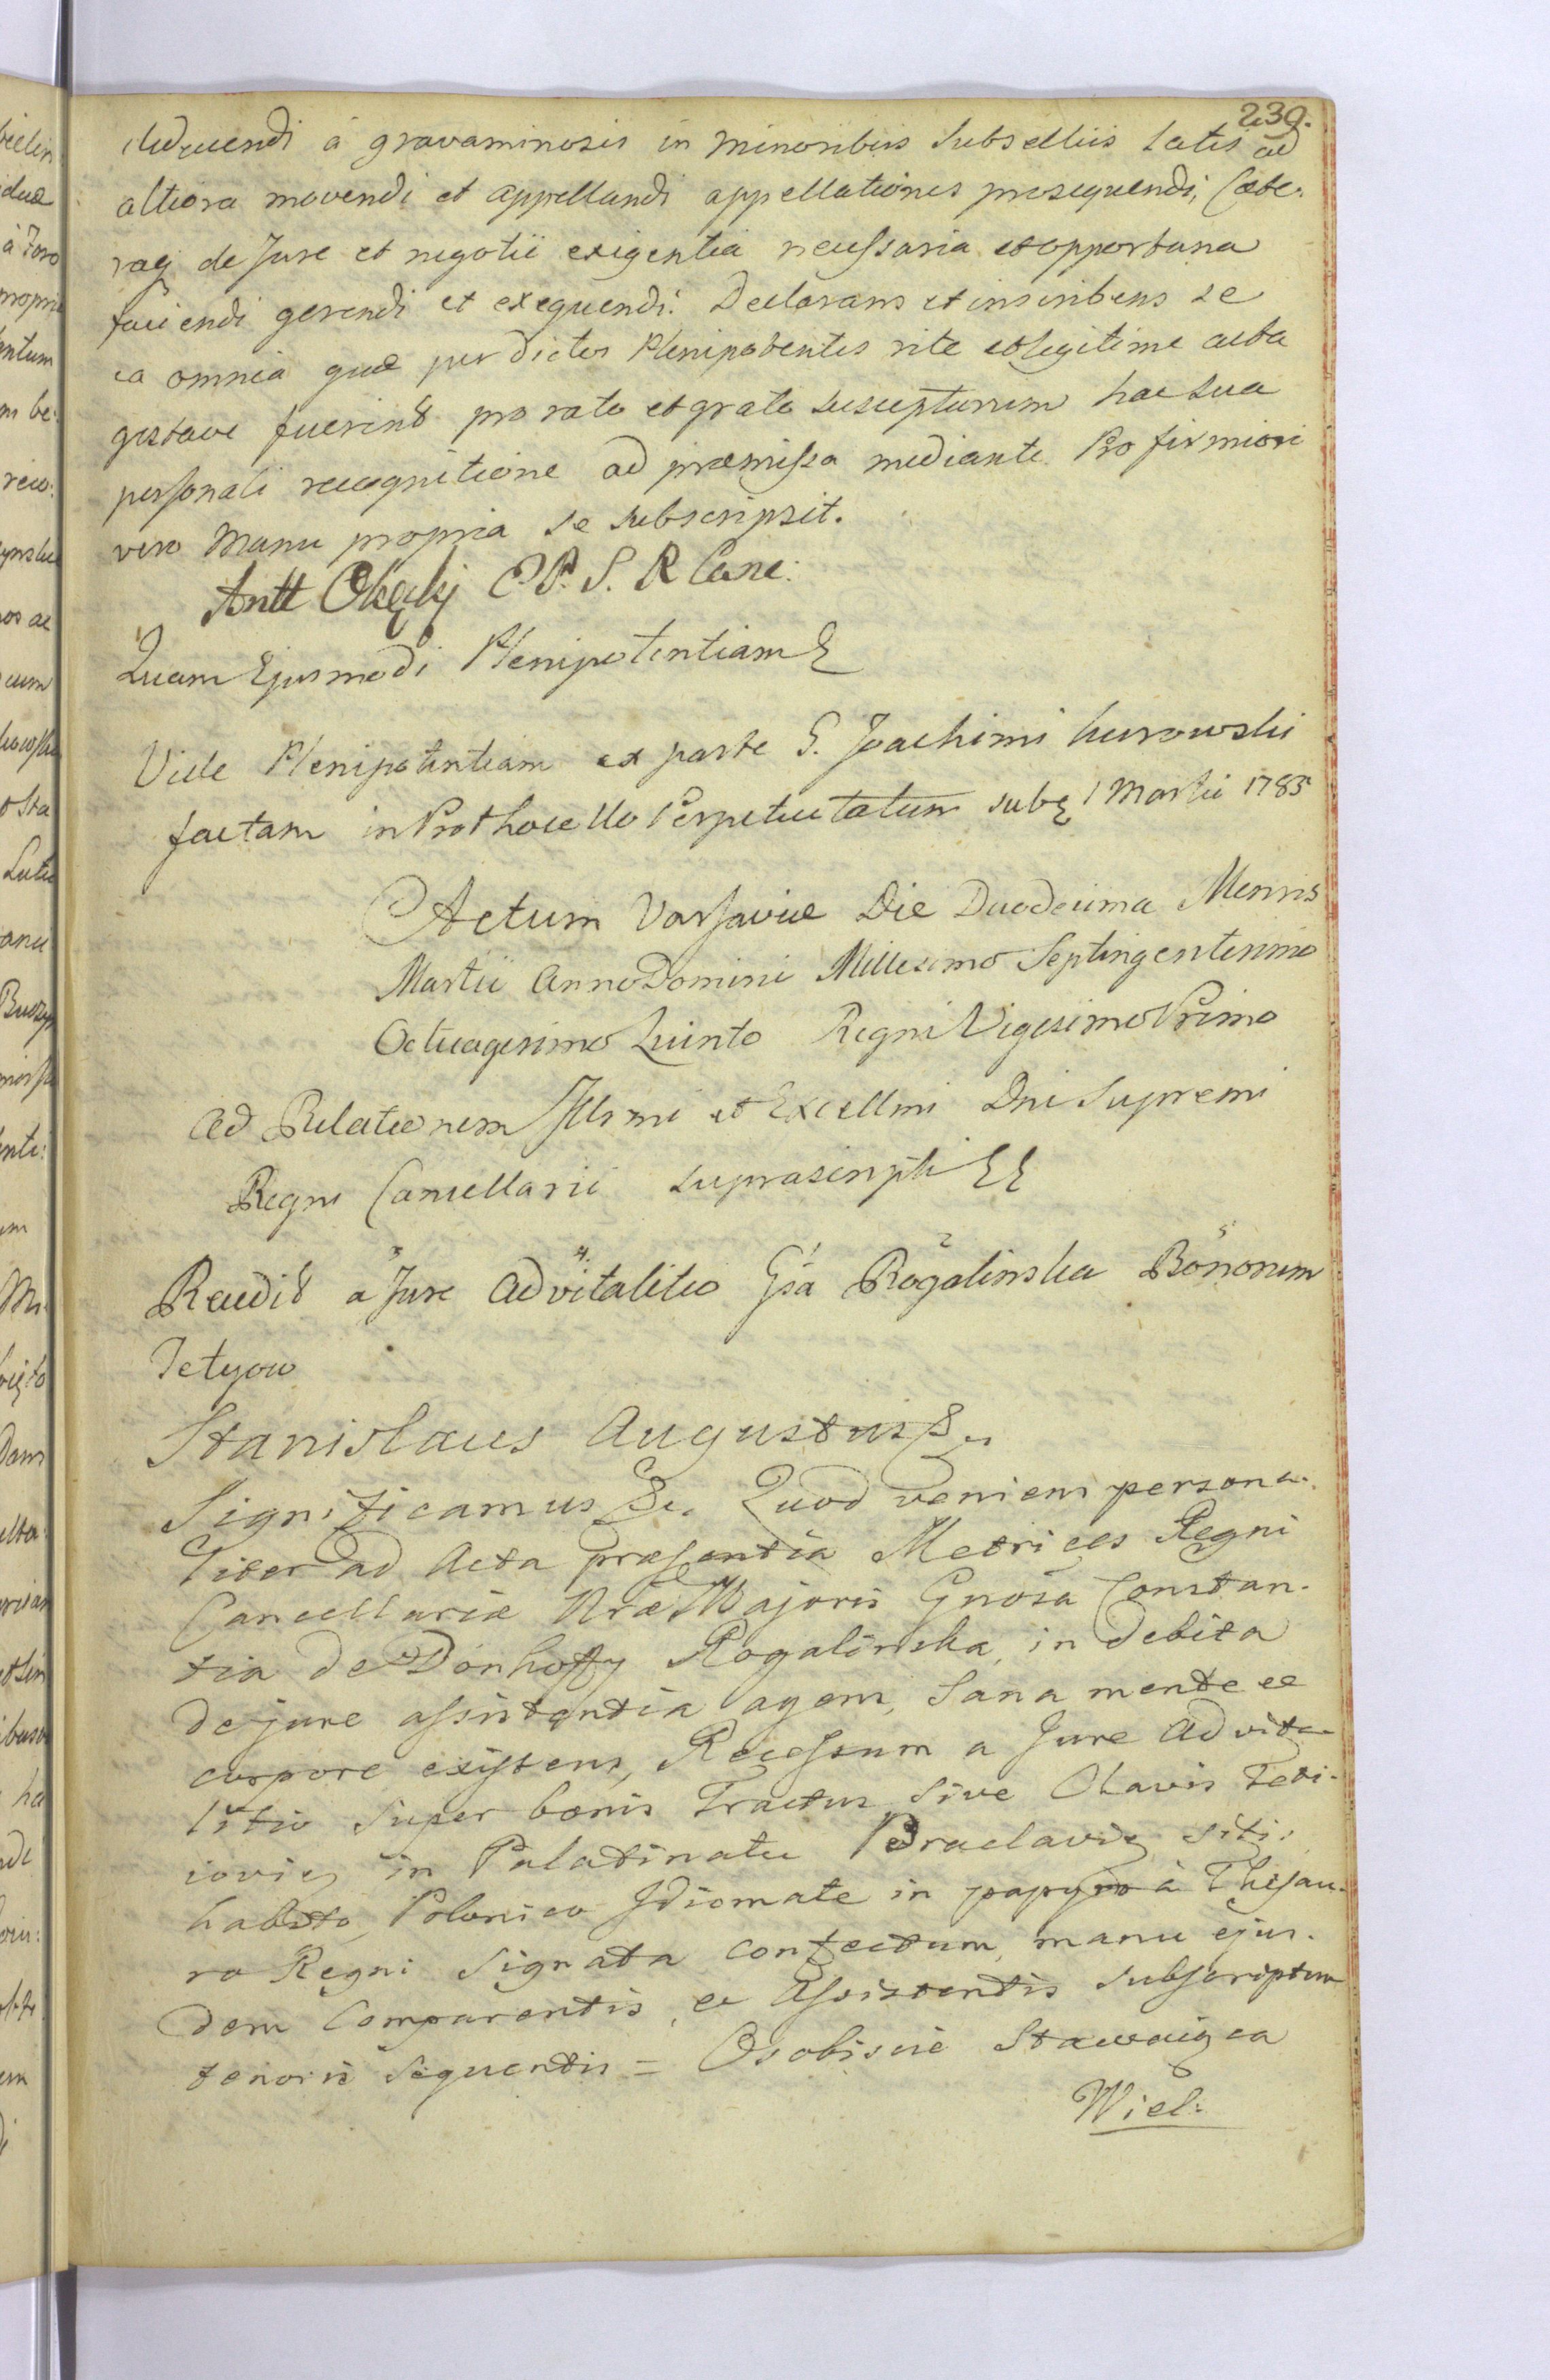 239.
deducendi á gravaminosis in Minoribus Subselliis Latis ad
altiora movendi et appellandi appellationes prosequendi, Caete-
raq de Jure et negotii exigentia necessaria et opportuna
faciendi gerendi et exequendi. Declarans et inscribens se
ea omnia quæ per dictos Plenipotentes rite et legitime acta
gestave fuerint pro rato et grato suscepturum hac sua
personali recognitione ad præmissa mediante. Pro firmiori
vero Manu propria se subscripsit.
Antt Okęcki E. P. S. R Canc:
Quam Ejusmodi Plenipotentiam &
Vide Plenipotentiam ex parte G. Joachimi Kurowski
factam in Prothocollo Perpetuitatum sub 1 Martii 1785
Actum Varsaviæ Die Duodecima Mensis
Martii Anno Domini Millesimo Septingentesimo
Octuagesimo Quinto Regni Vigesimo Primo
Ad Relationem Illsmi et Excellmi Dni Supremi
Regni Cancellarii suprascripti &&
Recedit a Jure Advitalitio Gsa Rogalinska Bonorum
Tetyow
Stanislaus Augustus &c
Significamus &c. Quod veniens persona-
liter ad Acta præsentia Metrices Regni
Cancellariæ Nræ Majoris Gnosa Constan-
tia de Donhoffy Rogalinska, in debita
de jure assistentia agens, Sana mente et
corpore existens, Recessum a Jure Advita-
litio Super bonis Tractus Sive Clavis Teti-
ioviẹn in Palatinatu Braclaviẹn siti:
habito Polonico Idiomate in papyro à Thesau-
ro Regni Signata confectum, manu ejus-
dem Comparentis, et Assistentis subscriptum
tenoris sequentis = Osobiscie Stawaiąca
Wiel: